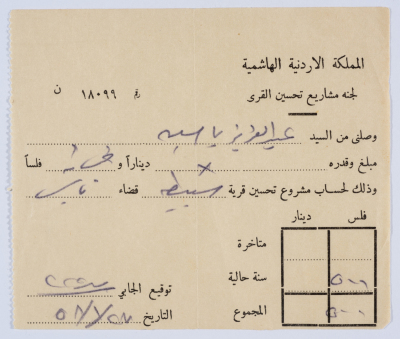 المملكة الاردنية الهاشمية
لجنه مشاريع تحسين القرى
رقم ١٨٠٩٩ ن
وصلني من السيد عبد العزيز ياسين
مبلغ وقدره × ديناراً و خمسمائة فلساً
وذلك لحساب مشروع تحسين قرية سبسطيه قضاء نابلس
فلس دينار
متاخرة
سنة حالية ٥٠٠
المجموع ٥٠٠
توقيع الجابي
التاريخ